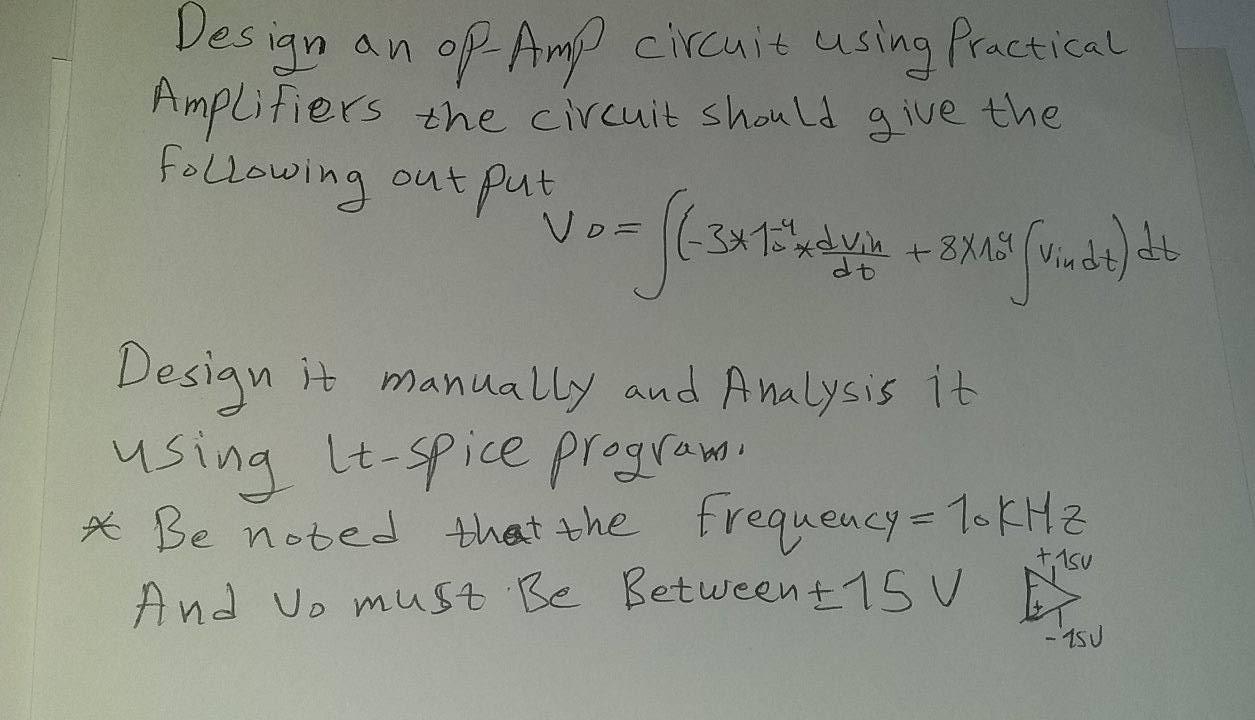 Design an op-Amp circuit using Practical
Amplifiers the circuit should give the
following output
Vo = ∫(-3*10^-4 * dvin/dt + 8X10^4 ∫vin dt) dt
Design it manually and Analysis it
using lt-spice program.
* Be noted that the frequency = 10KHz
And Vo must Be Between ±15 V
+15V
-15V